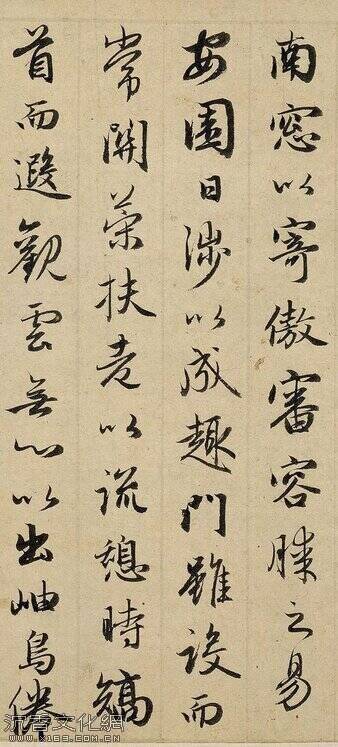 南窓以寄傲審容膝之易
安園日涉以成趣門雖設而
常關策扶老以流憩時矯
首而遐觀雲無心以出岫鳥倦
沉香文化網